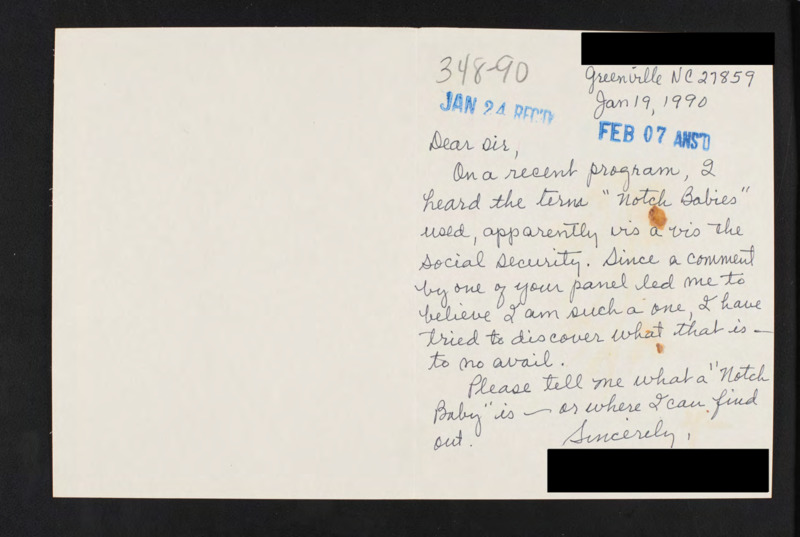 348-90
Greenville NC 27859
JAN 24 REC'D
Jan 19, 1990
FEB 07 ANS'D
Dear Sir,
On a recent program, I
heard the term "Notch Babies"
used, apparently vis a vis the
social security. Since a comment
by one of your panel led me to
believe I am such a one, I have
tried to discover what that is —
to no avail.
Please tell me what a "Notch
Baby" is — or where I can find
out.
Sincerely,